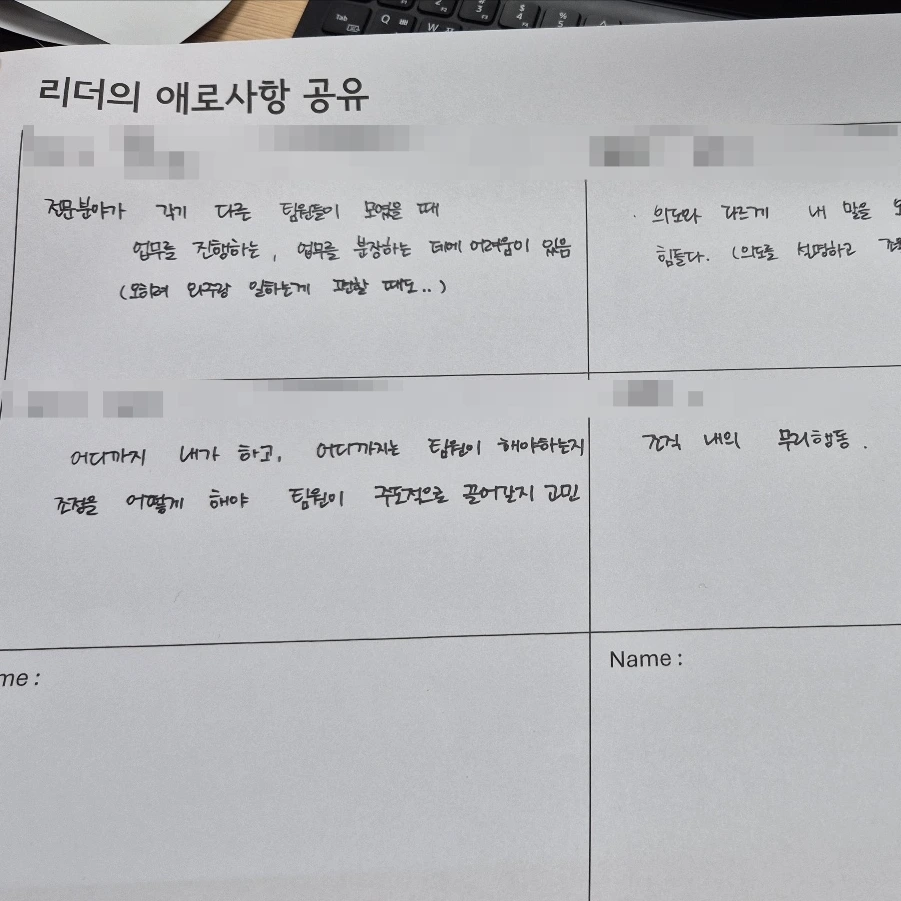 리더의 애로사항 공유
전문분야가 각기 다른 팀원들이 모였을 때
업무를 진행하는, 업무를 분장하는 데에 어려움이 있음
(오히려 외주랑 일하는게 편할 때도..)
의도와 다르게 내 말을
힘들다. (의도를 설명하고
어디까지 내가 하고, 어디까지는 팀원이 해야하는지
조정을 어떻게 해야 팀원이 주도적으로 끌어갈지 고민
조직 내의 무리행동.
me :
Name :
Tab
Q
W